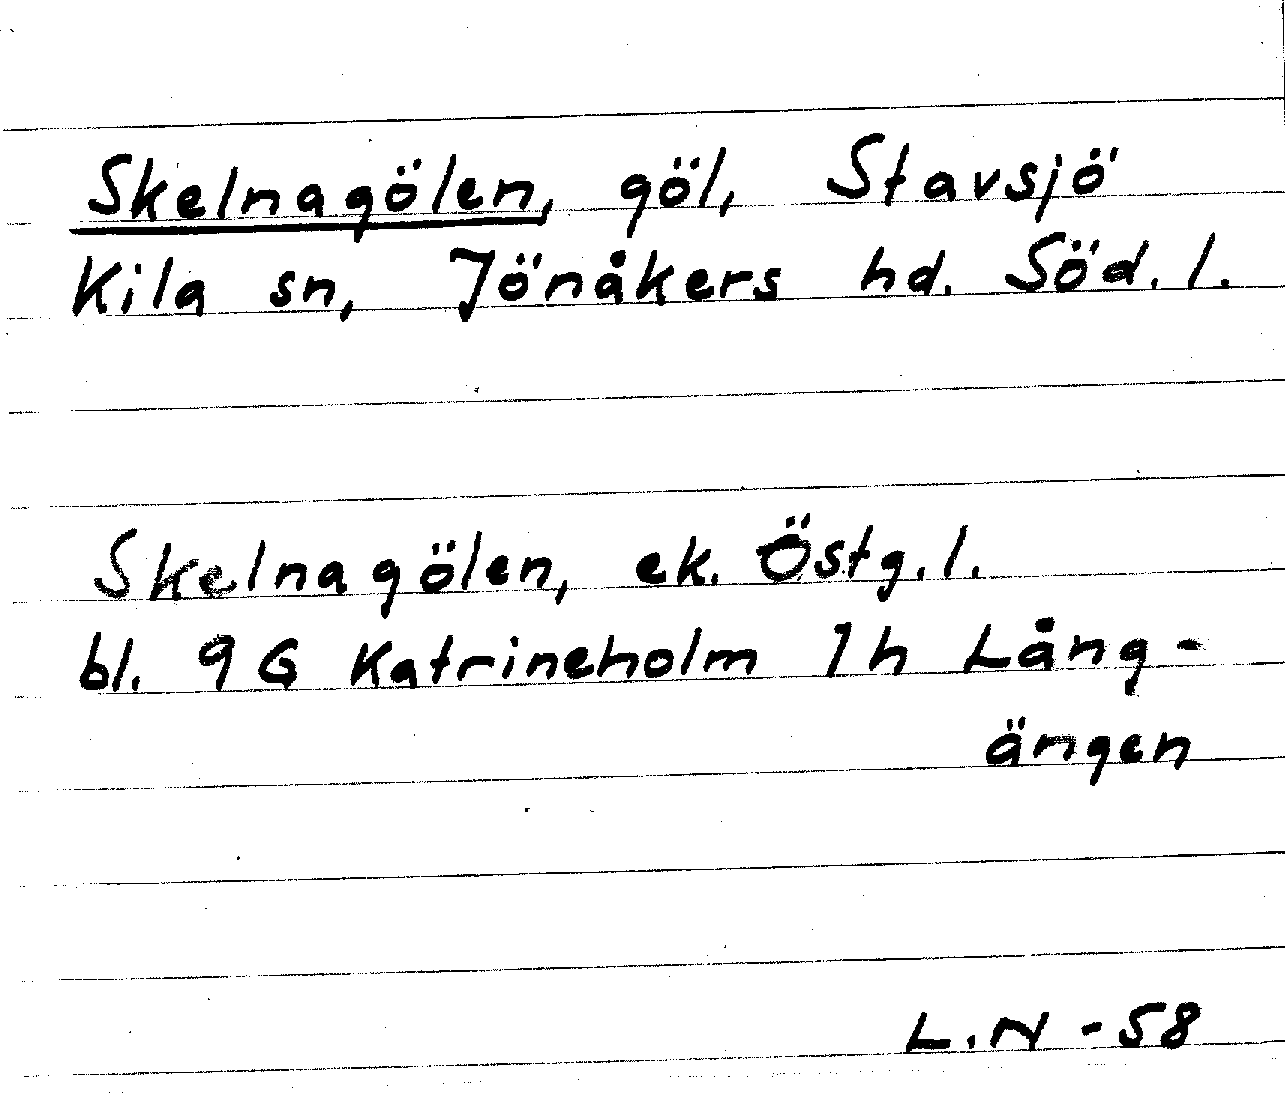 Skelnagölen, göl, Stavsjö
Kila sn, Jönåkers hd. Söd. l.
Skelnagölen, ek. Östg. l.
bl. 9 G Katrineholm 1h Lång-
ängen
L.N -58